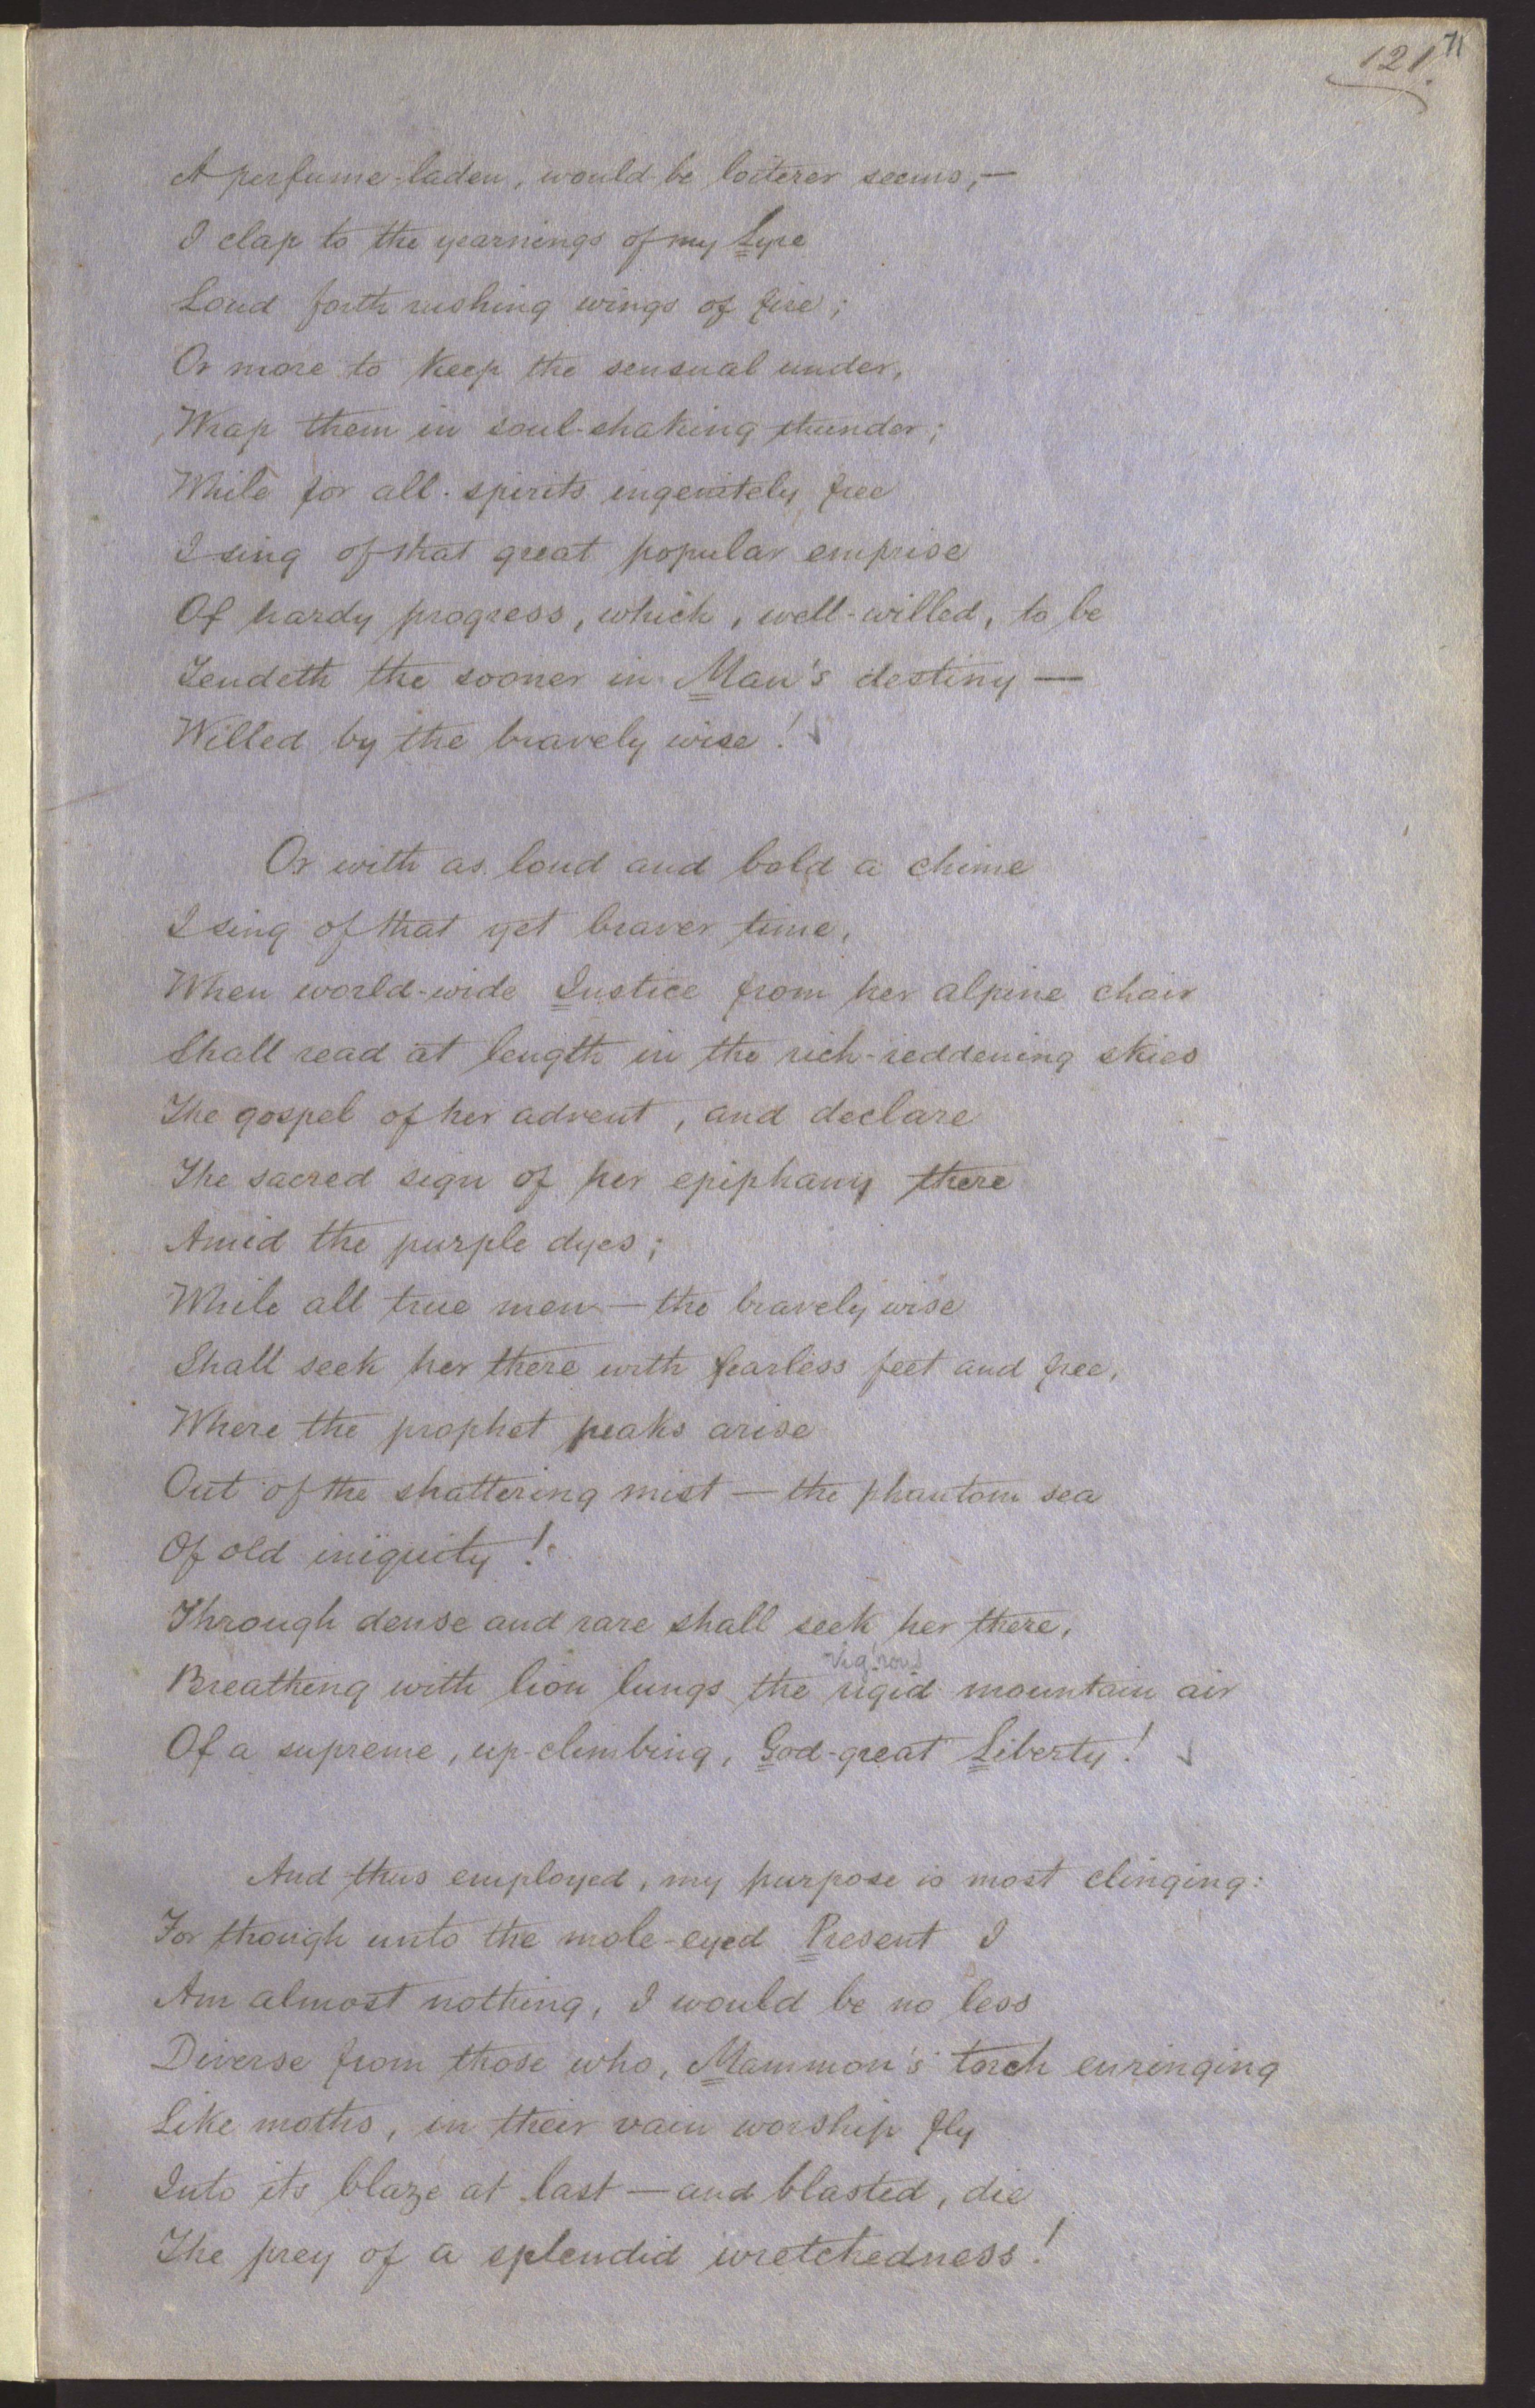 121.
71
A perfume-laden, would-be loiterer seems,—
I clap to the yearnings of my Lyre
Loud forth rushing wings of fire;
Or more to keep the sensual under,
Wrap them in soul-shaking thunder;
While for all spirits ingenitely free
I sing of that great popular emprise
Of hardy progress, which, well-willed, to be
Tendeth the sooner in Man's destiny —
Willed by the bravely wise!
Or with as loud and bold a chime
I sing of that yet braver time,
When world-wide Justice from her alpine chair
Shall read at length in the rich-reddening skies
The gospel of her advent, and declare
The sacred sign of her epiphany there
Amid the purple dyes;
While all true men — the bravely wise
Shall seek her there with fearless feet and free,
Where the prophet peaks arise
Out of the shattering mist — the phantom sea
Of old iniquity!
Through dense and rare shall seek her there,
vig'rous
Breathing with lion lungs the rigid mountain air
Of a supreme, up-climbing, God-great Liberty!
And thus employed, my purpose is most clinging:
For though unto the mole-eyed Present I
Am almost nothing, I would be no less
Diverse from those who, Mammon's torch enringing
Like moths, in their vain worship fly
Into its blaze at last — and blasted, die
The prey of a splendid wretchedness!